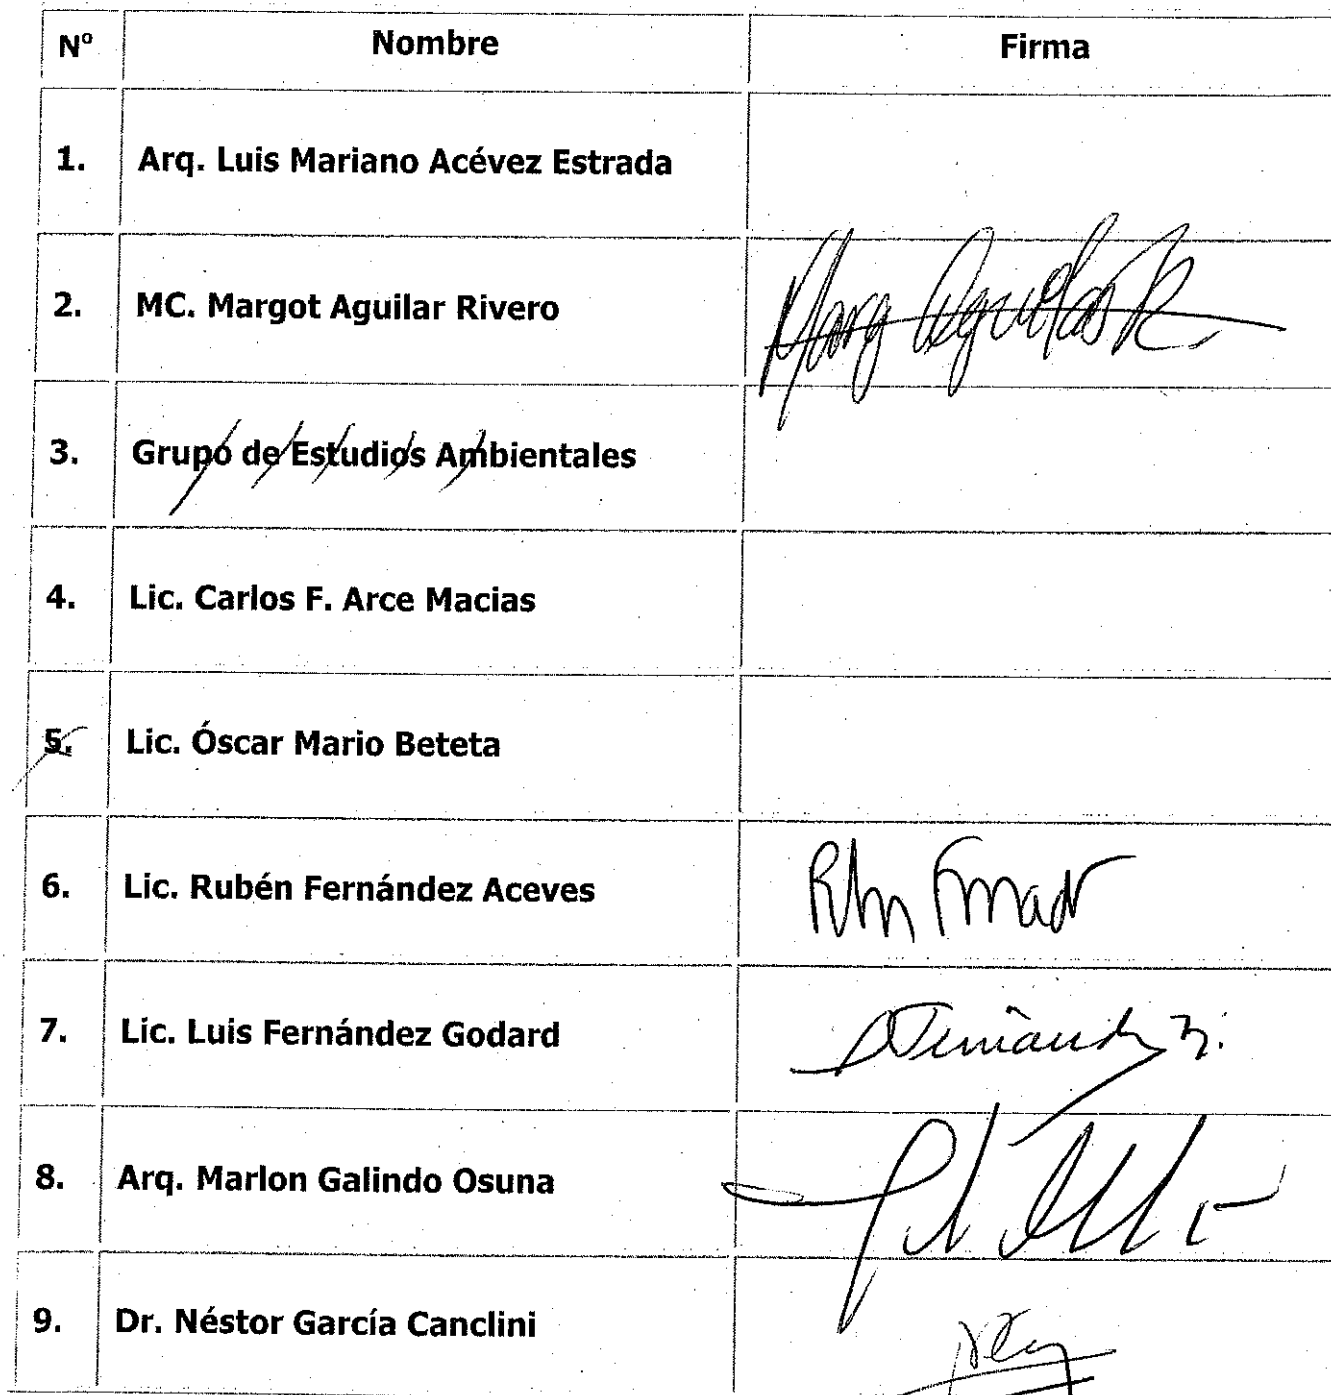 Nº Nombre Firma
1. Arq. Luis Mariano Acévez Estrada
2. MC. Margot Aguilar Rivero Marg Aguilar R.
3. Grupo de Estudios Ambientales
4. Lic. Carlos F. Arce Macias
5. Lic. Óscar Mario Beteta
6. Lic. Rubén Fernández Aceves
7. Lic. Luis Fernández Godard
8. Arq. Marlon Galindo Osuna
9. Dr. Néstor García Canclini